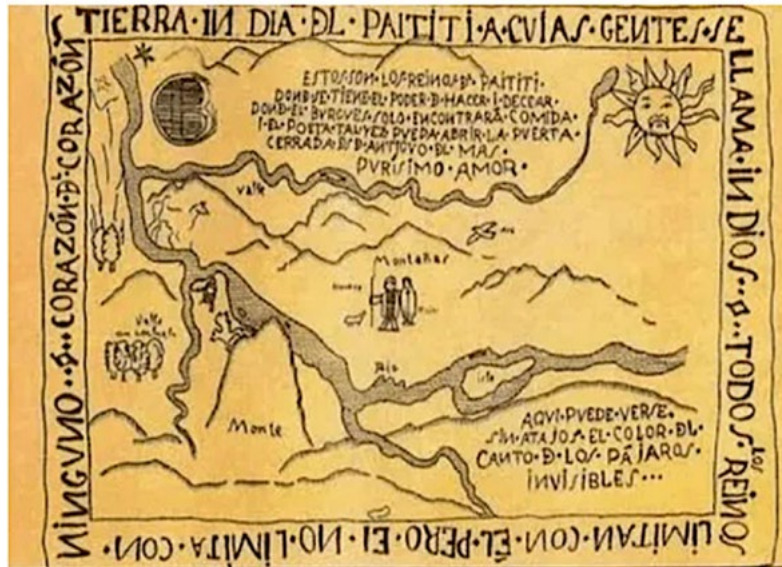 TIERRA·IN DIA·DL·PAITITI·A·CVIAS·GENTES·SE
LLAMA·INDIOS··TODOS·LOS·REINOS
LIMITAN·CON·ÉL·PERO·EL·NO·LIMITA·CON·
NINGUNO··CORAZÓN·DL·CORAZÓN
ESTOS·SON·LOS·REINOS·D·PAITITI·
DONDE·SE·TIENE·EL·PODER·D·HACER·I·DECEAR
DOND·EL·BURGUES·SOLO·ENCONTRARÁ·COMIDA
I·EL·POETA·TALVEZ·PUEDA·ABRIR·LA·PUERTA·
CERRADA·DSD·ANTIGUO·DL·MAS·
PURISIMO·AMOR·
Valle
Ave
Montañas
Valle
Rio
Isla
Monte
AQUI·PUEDE·VERSE·
SIN·ATAJOS·EL·COLOR·DL·
CANTO·D·LOS·PÁJAROS·
INVISIBLES···